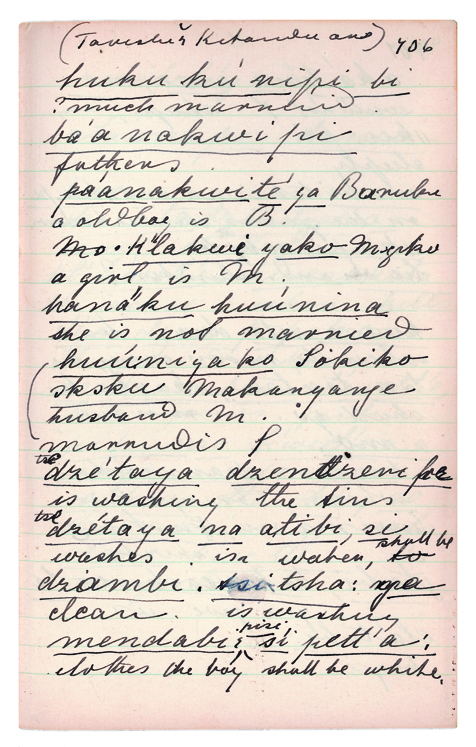 706
huku kú nipi bi
? much married
bá a nakwi pi
fathers
páánakwité ya Bambu
a old boy is B.
Mo. Klakwé yako Myeko
a girl is M.
haná'ku huúnina
she is not married
huúniyako Sokiko
sksku Makanyanye
husband M.
married is S
tse
dzétaya dzendzevi
is washing the tins
tse
dzétaya na atibi, si
washes in water, shall be
dzámbi. tsitsha: ya
clean. is washing
mendabi; sí pett'a:
pisi
clothes the boy shall be white.